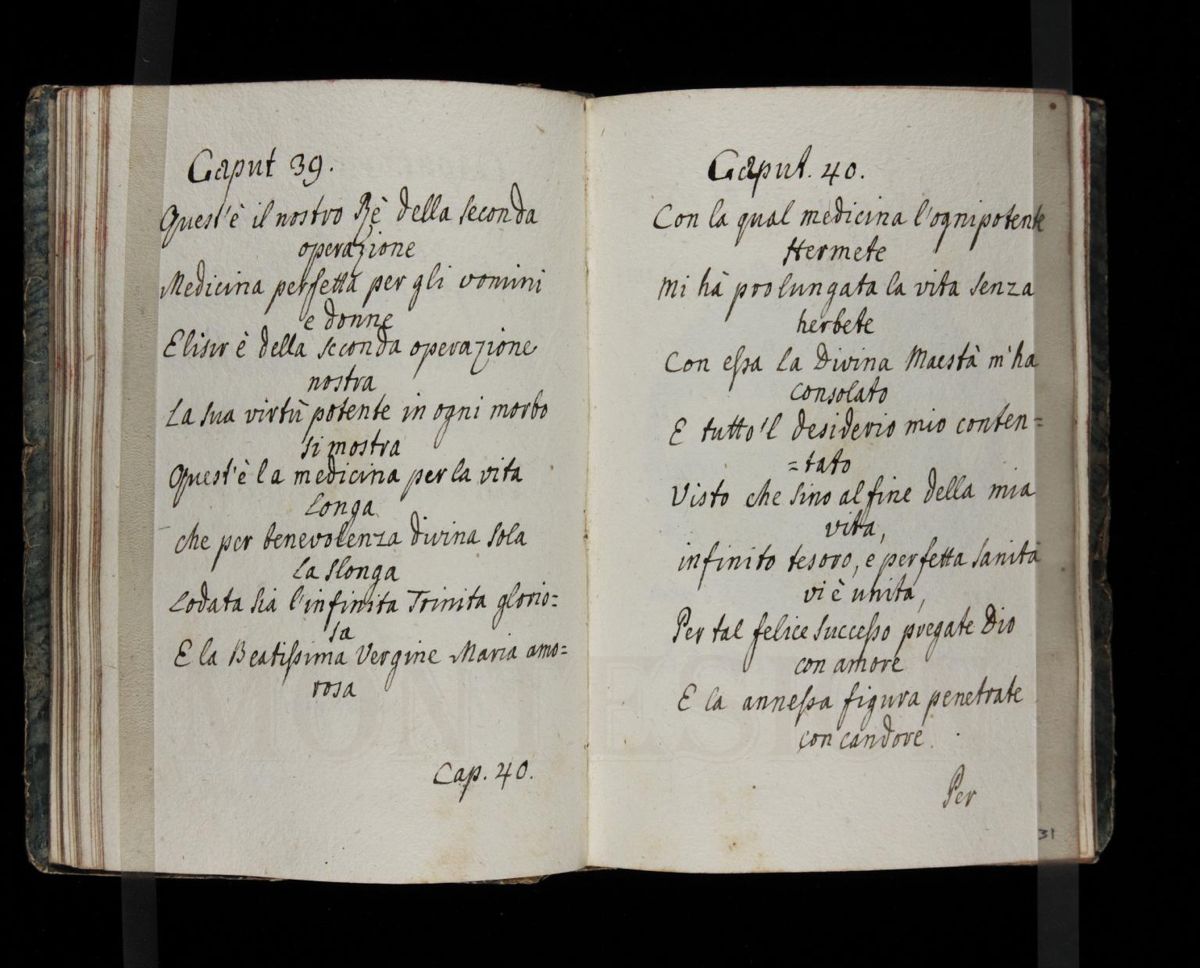 Caput 39.
Quest'è il nostro Rè della seconda
operazione
Medicina perfetta per gli vomini
e donne
Elisir è della seconda operazione
nostra
La sua virtù potente in ogni morbo
si mostra
Quest'è la medicina per la vita
Longa
che per benevolenza divina sola
la slonga
Lodata sia l'infinita Trinita glorio=
sa
E la Beatiſsima Vergine Maria amo=
rosa
Cap. 40.
Caput. 40.
Con la qual medicina l'ognipotente
Hermete
Mi hà prolungata la vita senza
herbete
Con eſsa la Divina Maestà m'ha
consolato
E tutto'l desiderio mio conten=
=tato
Visto che sino al fine della mia
vita,
infinito tesoro, e perfetta sanità
vi è unita,
Per tal felice succeſso pregate Dio
con amore
E la anneſsa figura penetrate
con candore.
Per
31